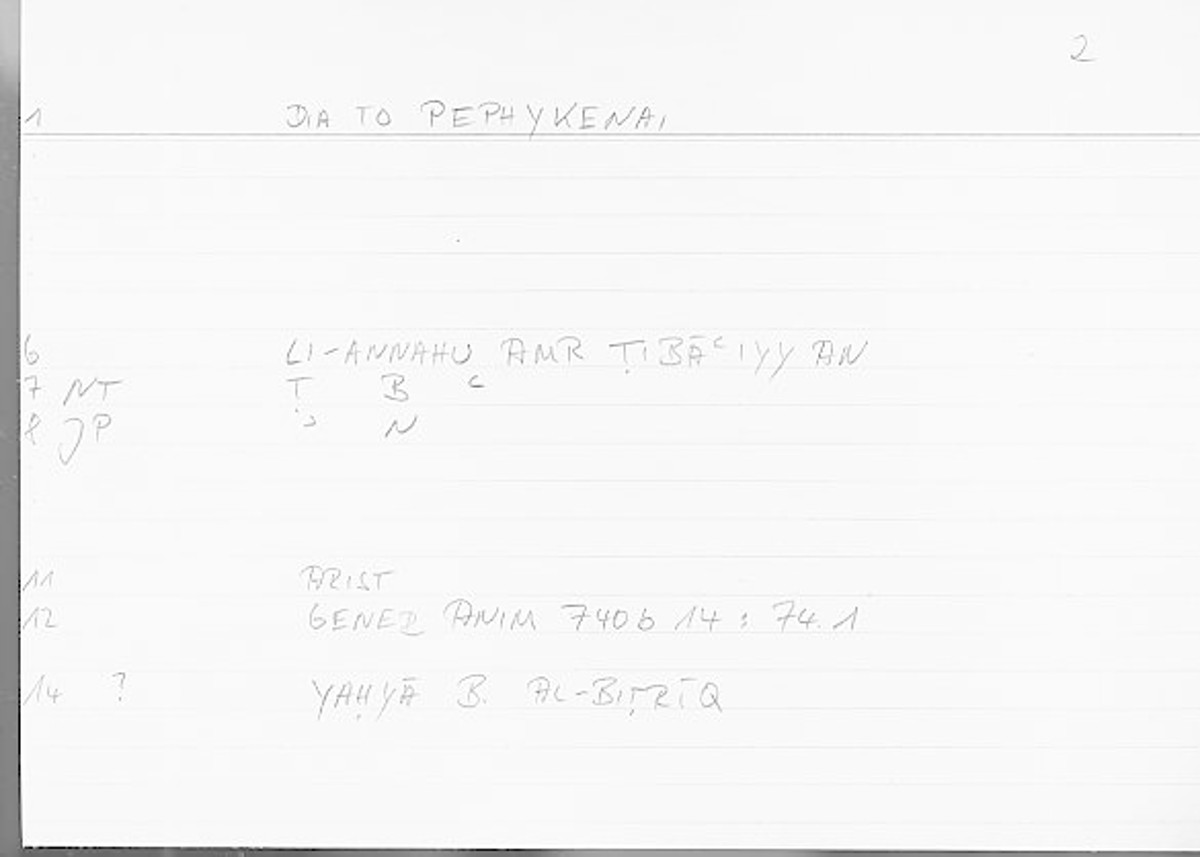 2
1 DIA TO PEPHYKENAI
6 LI-ANNAHU AMR ṬIBĀʿIYYAN
7 NT Ṭ B ʿ
8 JP N
11 ARIST
12 GENER ANIM 740b 14 : 74.1
14 ? YAḤYĀ B. AL-BIṬRĪQ